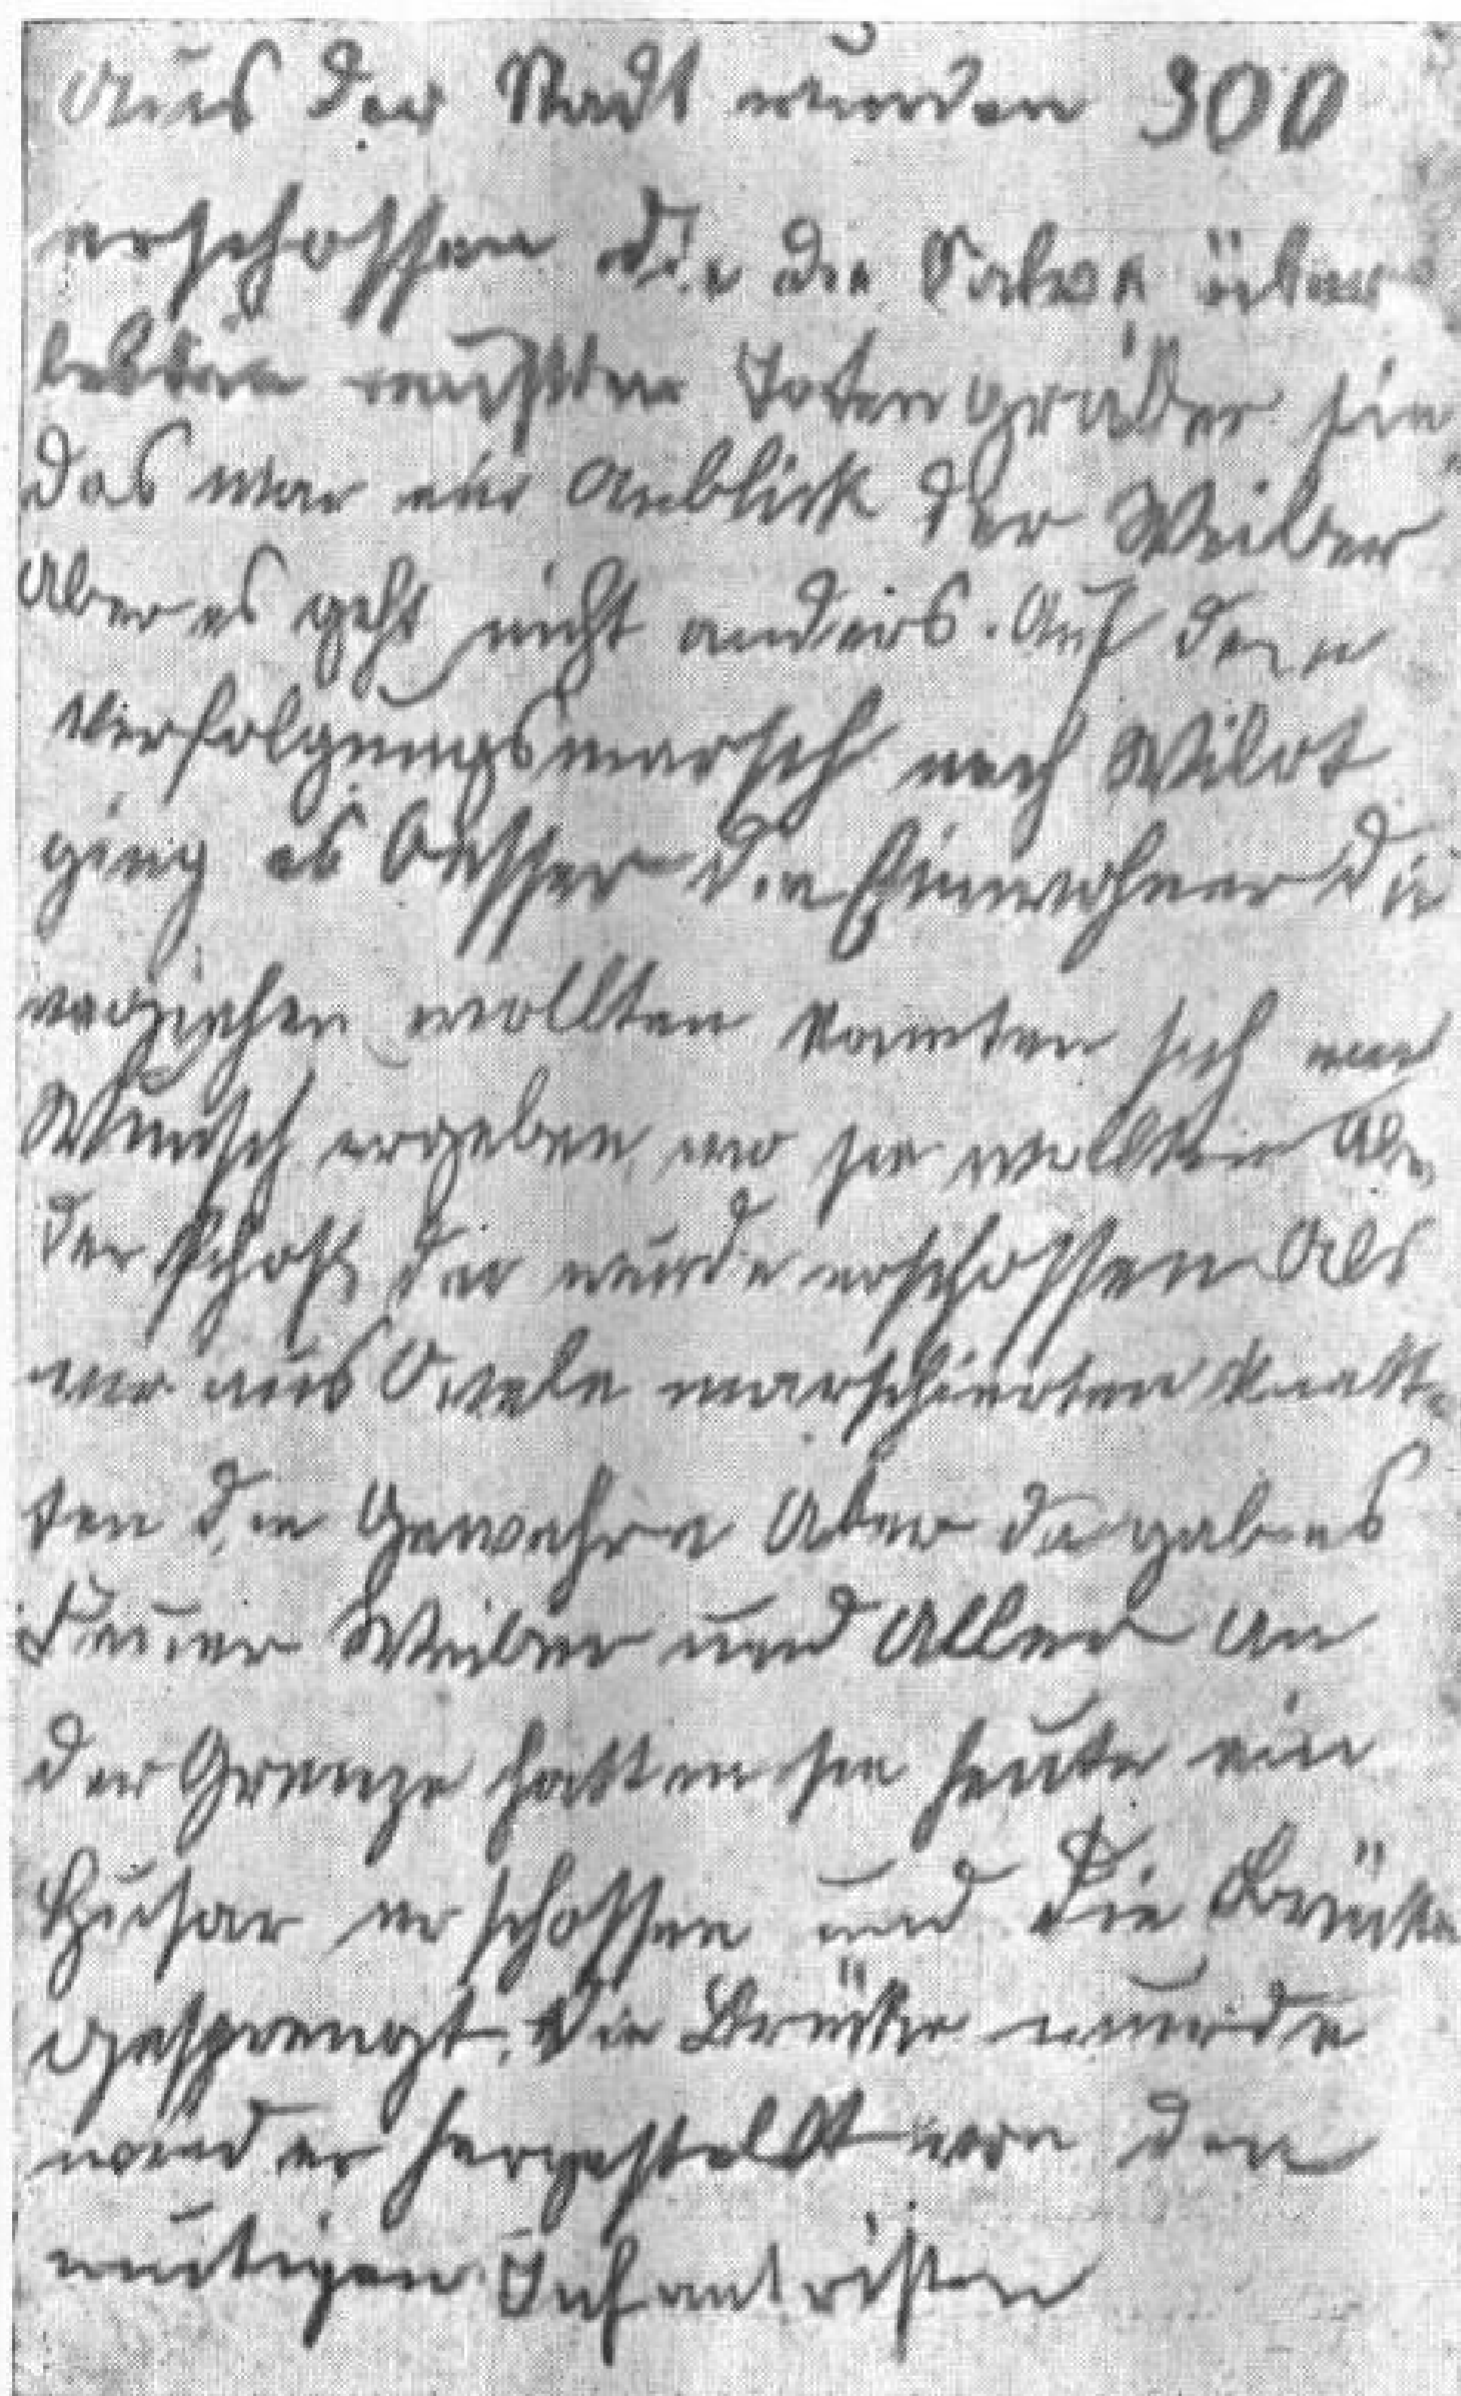 Aus der Stadt wurden 300
erschossen die die Salve über
lebten mußten Totengräber sein
das war ein Anblick der Weiber
Aber es geht nicht anders. Auf dem
Verfolgungsmarsch nach Wilot
ging es besser die Einwohner die
verziehen wollten konnten sich nach
Wunsch ergeben, wo sie wollten Aber
der schoß der wurde erschossen Als
wir aus Owele marschierten knatt-
ten die Gewehre Aber da gab es
Feuer Weiber und Alles An
der Grenze hatten sie heute ein
Husar erschossen und die Brücke
gesprengt. Die Brücke wurde
wieder hergestellt von den
mutigen Infantristen